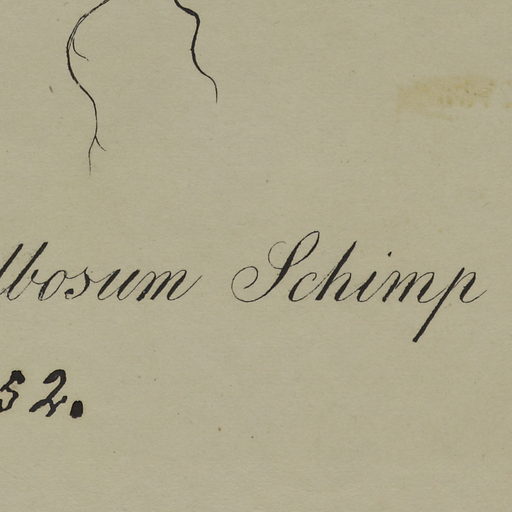 lbosum Schimp
52.